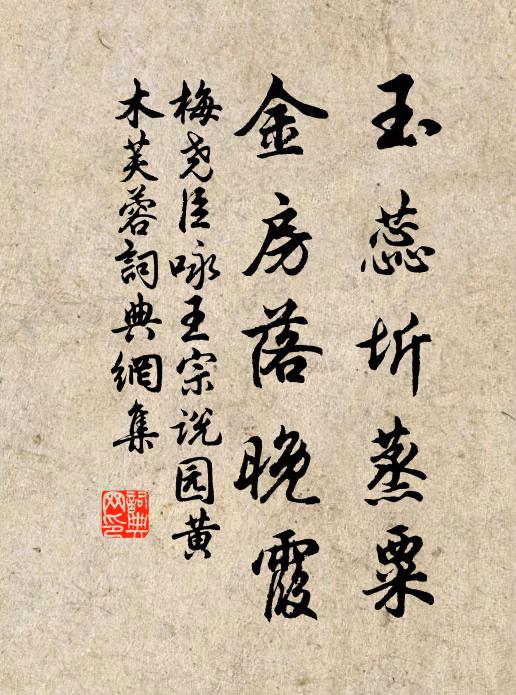 玉蕊坼蒸粟
金房落晚霞
梅尧臣咏王宗说园黄
木芙蓉詞典網集
詞典
网印